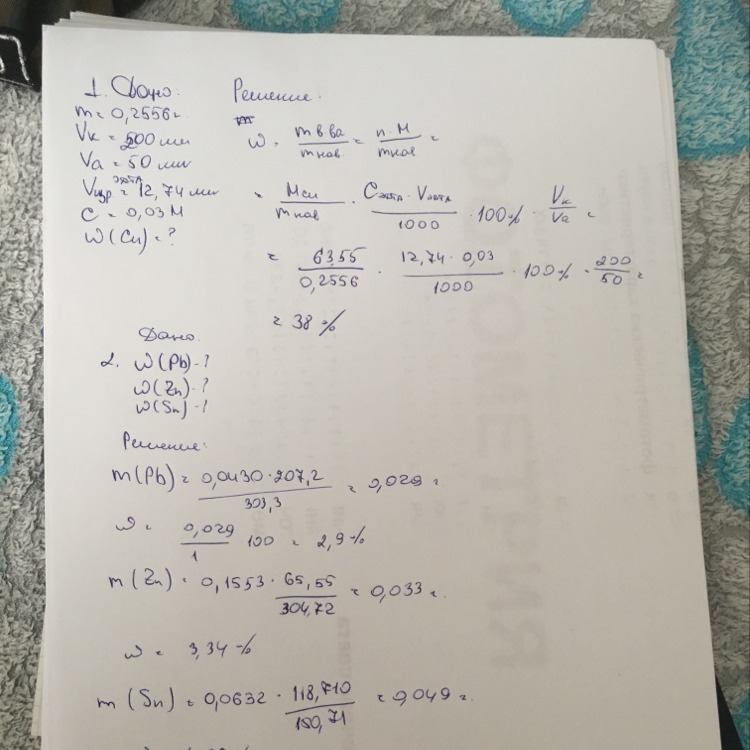 1. Дано:
Решение:
m = 0,2556 г
Vк = 200 мл
Va = 50 мл
Vцр ЭДТА = 12,74 мл
C = 0,03 М
ω(Cu) = ?
ω = m в ва / m нав = n · M / m нав =
= M Cu / m нав · C ЭДТА · V ЭДТА / 1000 · 100% · Vк / Va =
= 63,55 / 0,2556 · 12,74 · 0,03 / 1000 · 100% · 200 / 50 =
= 38%
Дано
2. ω(Pb) - ?
ω(Zn) - ?
ω(Sn) - ?
Решение:
m(Pb) = 0,0430 · 207,2 / 303,3 = 0,029 г
ω = 0,029 / 1 · 100 = 2,9%
m(Zn) = 0,1553 · 65,55 / 304,72 = 0,033 г.
ω = 3,34%
m(Sn) = 0,0632 · 118,710 / 150,71 = 0,049 г.